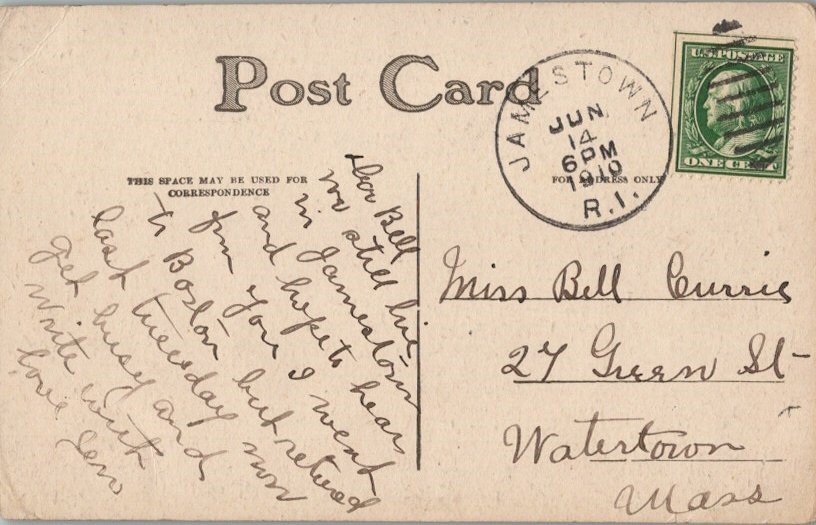 Post Card
THIS SPACE MAY BE USED FOR
CORRESPONDENCE
FOR ADDRESS ONLY
JAMESTOWN
JUN
14
6 PM
1910
R.I.
U.S. POSTAGE
ONE CENT
Dear Bell
we still live
in Jamestown
and hope to hear
from you I went
to Boston but retured
last tuesday now
get busy and
write
love
Miss Bell Currie
27 Green St
Watertown
Mass